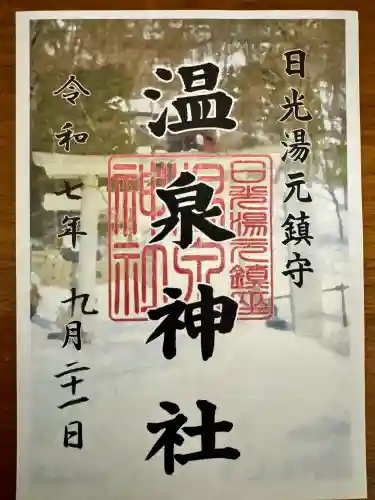 日光湯元鎮守
温泉神社
令和七年 九月二十一日
日光湯元鎮座
温泉
神社